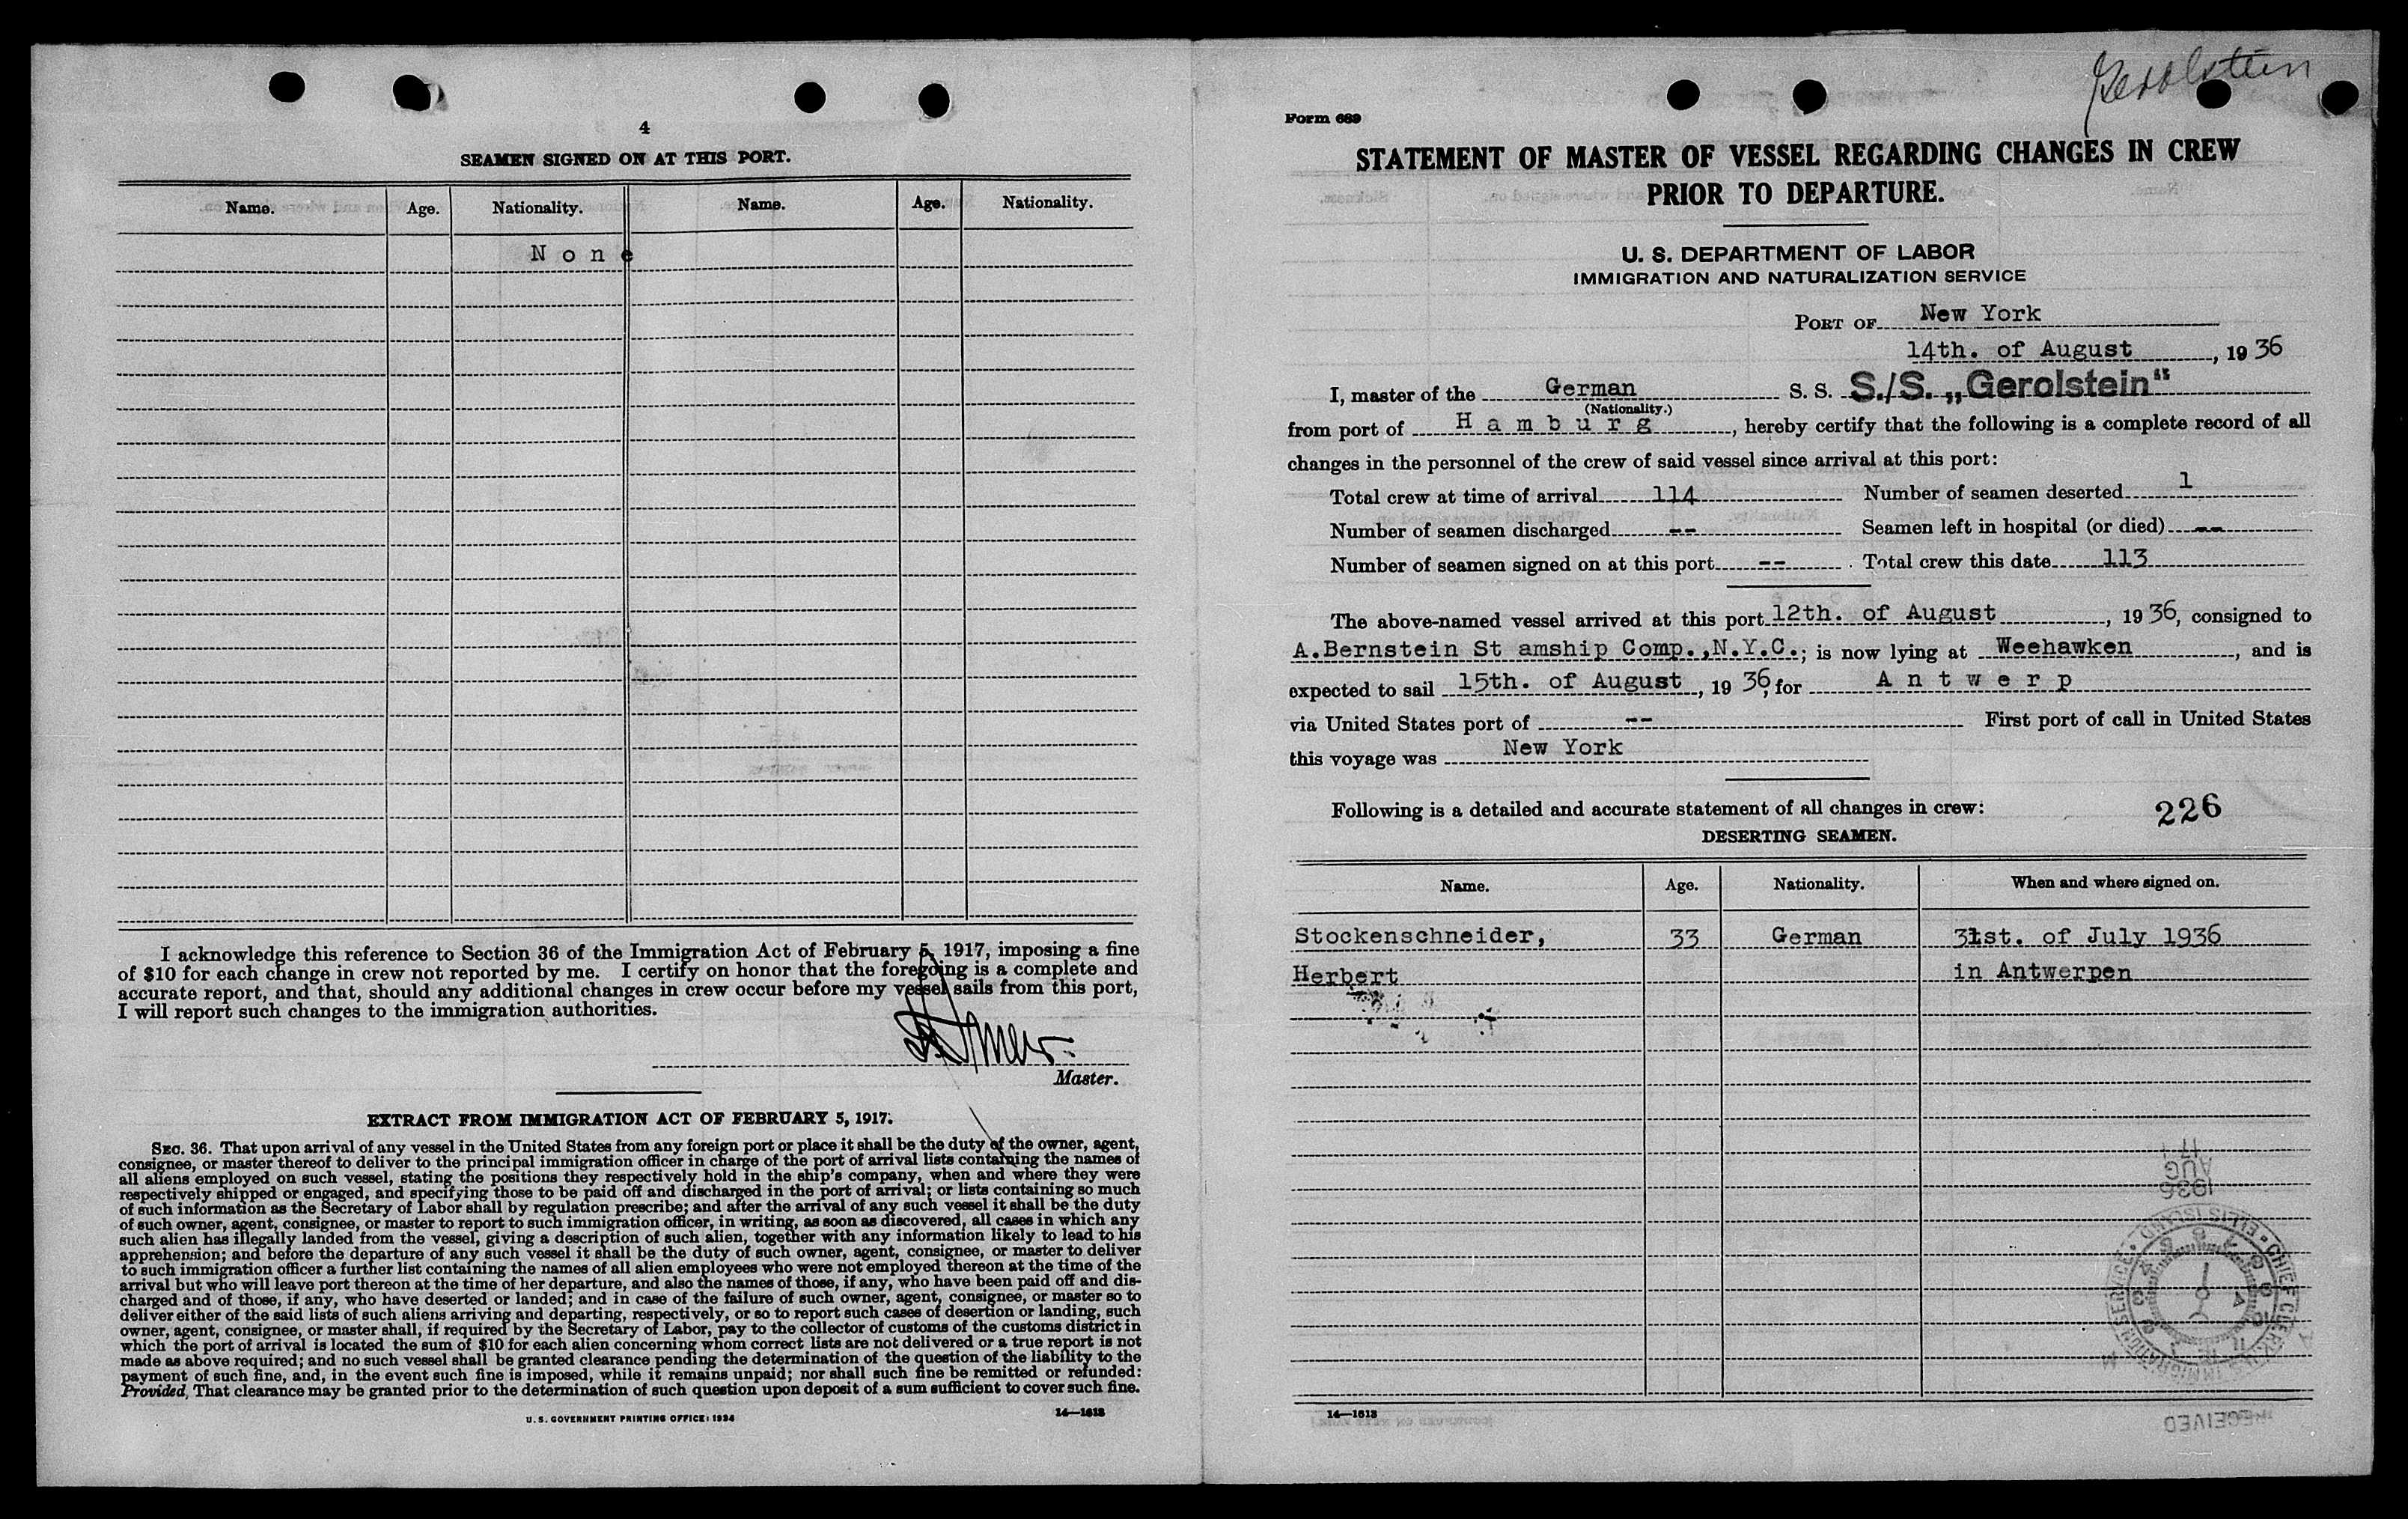 4
SEAMEN SIGNED ON AT THIS PORT.
Name. Age. Nationality. Name. Age. Nationality.
N o n e
I acknowledge this reference to Section 36 of the Immigration Act of February 5, 1917, imposing a fine
of $10 for each change in crew not reported by me. I certify on honor that the foregoing is a complete and
accurate report, and that, should any additional changes in crew occur before my vessel sails from this port,
I will report such changes to the immigration authorities.
Master.
EXTRACT FROM IMMIGRATION ACT OF FEBRUARY 5, 1917.
SEC. 36. That upon arrival of any vessel in the United States from any foreign port or place it shall be the duty of the owner, agent,
consignee, or master thereof to deliver to the principal immigration officer in charge of the port of arrival lists containing the names of
all aliens employed on such vessel, stating the positions they respectively hold in the ship's company, when and where they were
respectively shipped or engaged, and specifying those to be paid off and discharged in the port of arrival; or lists containing so much
of such information as the Secretary of Labor shall by regulation prescribe; and after the arrival of any such vessel it shall be the duty
of such owner, agent, consignee, or master to report to such immigration officer, in writing, as soon as discovered, all cases in which any
such alien has illegally landed from the vessel, giving a description of such alien, together with any information likely to lead to his
apprehension; and before the departure of any such vessel it shall be the duty of such owner, agent, consignee, or master to deliver
to such immigration officer a further list containing the names of all alien employees who were not employed thereon at the time of the
arrival but who will leave port thereon at the time of her departure, and also the names of those, if any, who have been paid off and dis-
charged and of those, if any, who have deserted or landed; and in case of the failure of such owner, agent, consignee, or master so to
deliver either of the said lists of such aliens arriving and departing, respectively, or so to report such cases of desertion or landing, such
owner, agent, consignee, or master shall, if required by the Secretary of Labor, pay to the collector of customs of the customs district in
which the port of arrival is located the sum of $10 for each alien concerning whom correct lists are not delivered or a true report is not
made as above required; and no such vessel shall be granted clearance pending the determination of the question of the liability to the
payment of such fine, and, in the event such fine is imposed, while it remains unpaid; nor shall such fine be remitted or refunded:
Provided, That clearance may be granted prior to the determination of such question upon deposit of a sum sufficient to cover such fine.
U. S. GOVERNMENT PRINTING OFFICE: 1934 14—1613
Gerolstein
Form 689
STATEMENT OF MASTER OF VESSEL REGARDING CHANGES IN CREW
PRIOR TO DEPARTURE.
U. S. DEPARTMENT OF LABOR
IMMIGRATION AND NATURALIZATION SERVICE
PORT OF New York
14th. of August, 1936
I, master of the German S. S. S./S. „Gerolstein"
(Nationality.)
from port of H a m b u r g, hereby certify that the following is a complete record of all
changes in the personnel of the crew of said vessel since arrival at this port:
Total crew at time of arrival 114 Number of seamen deserted 1
Number of seamen discharged -- Seamen left in hospital (or died) --
Number of seamen signed on at this port -- Total crew this date 113
The above-named vessel arrived at this port 12th. of August, 1936, consigned to
A.Bernstein St amship Comp.,N.Y.C.; is now lying at Weehawken, and is
expected to sail 15th. of August, 1936, for A n t w e r p
via United States port of -- First port of call in United States
this voyage was New York
Following is a detailed and accurate statement of all changes in crew:
226
DESERTING SEAMEN.
Name. Age. Nationality. When and where signed on.
Stockenschneider, 33 German 31st. of July 1936
Herbert in Antwerpen
17
AUG
1936
ELLIS ISLAND • CHIEF CLERK
IMMIGRATION SERVICE
RECEIVED
14—1613